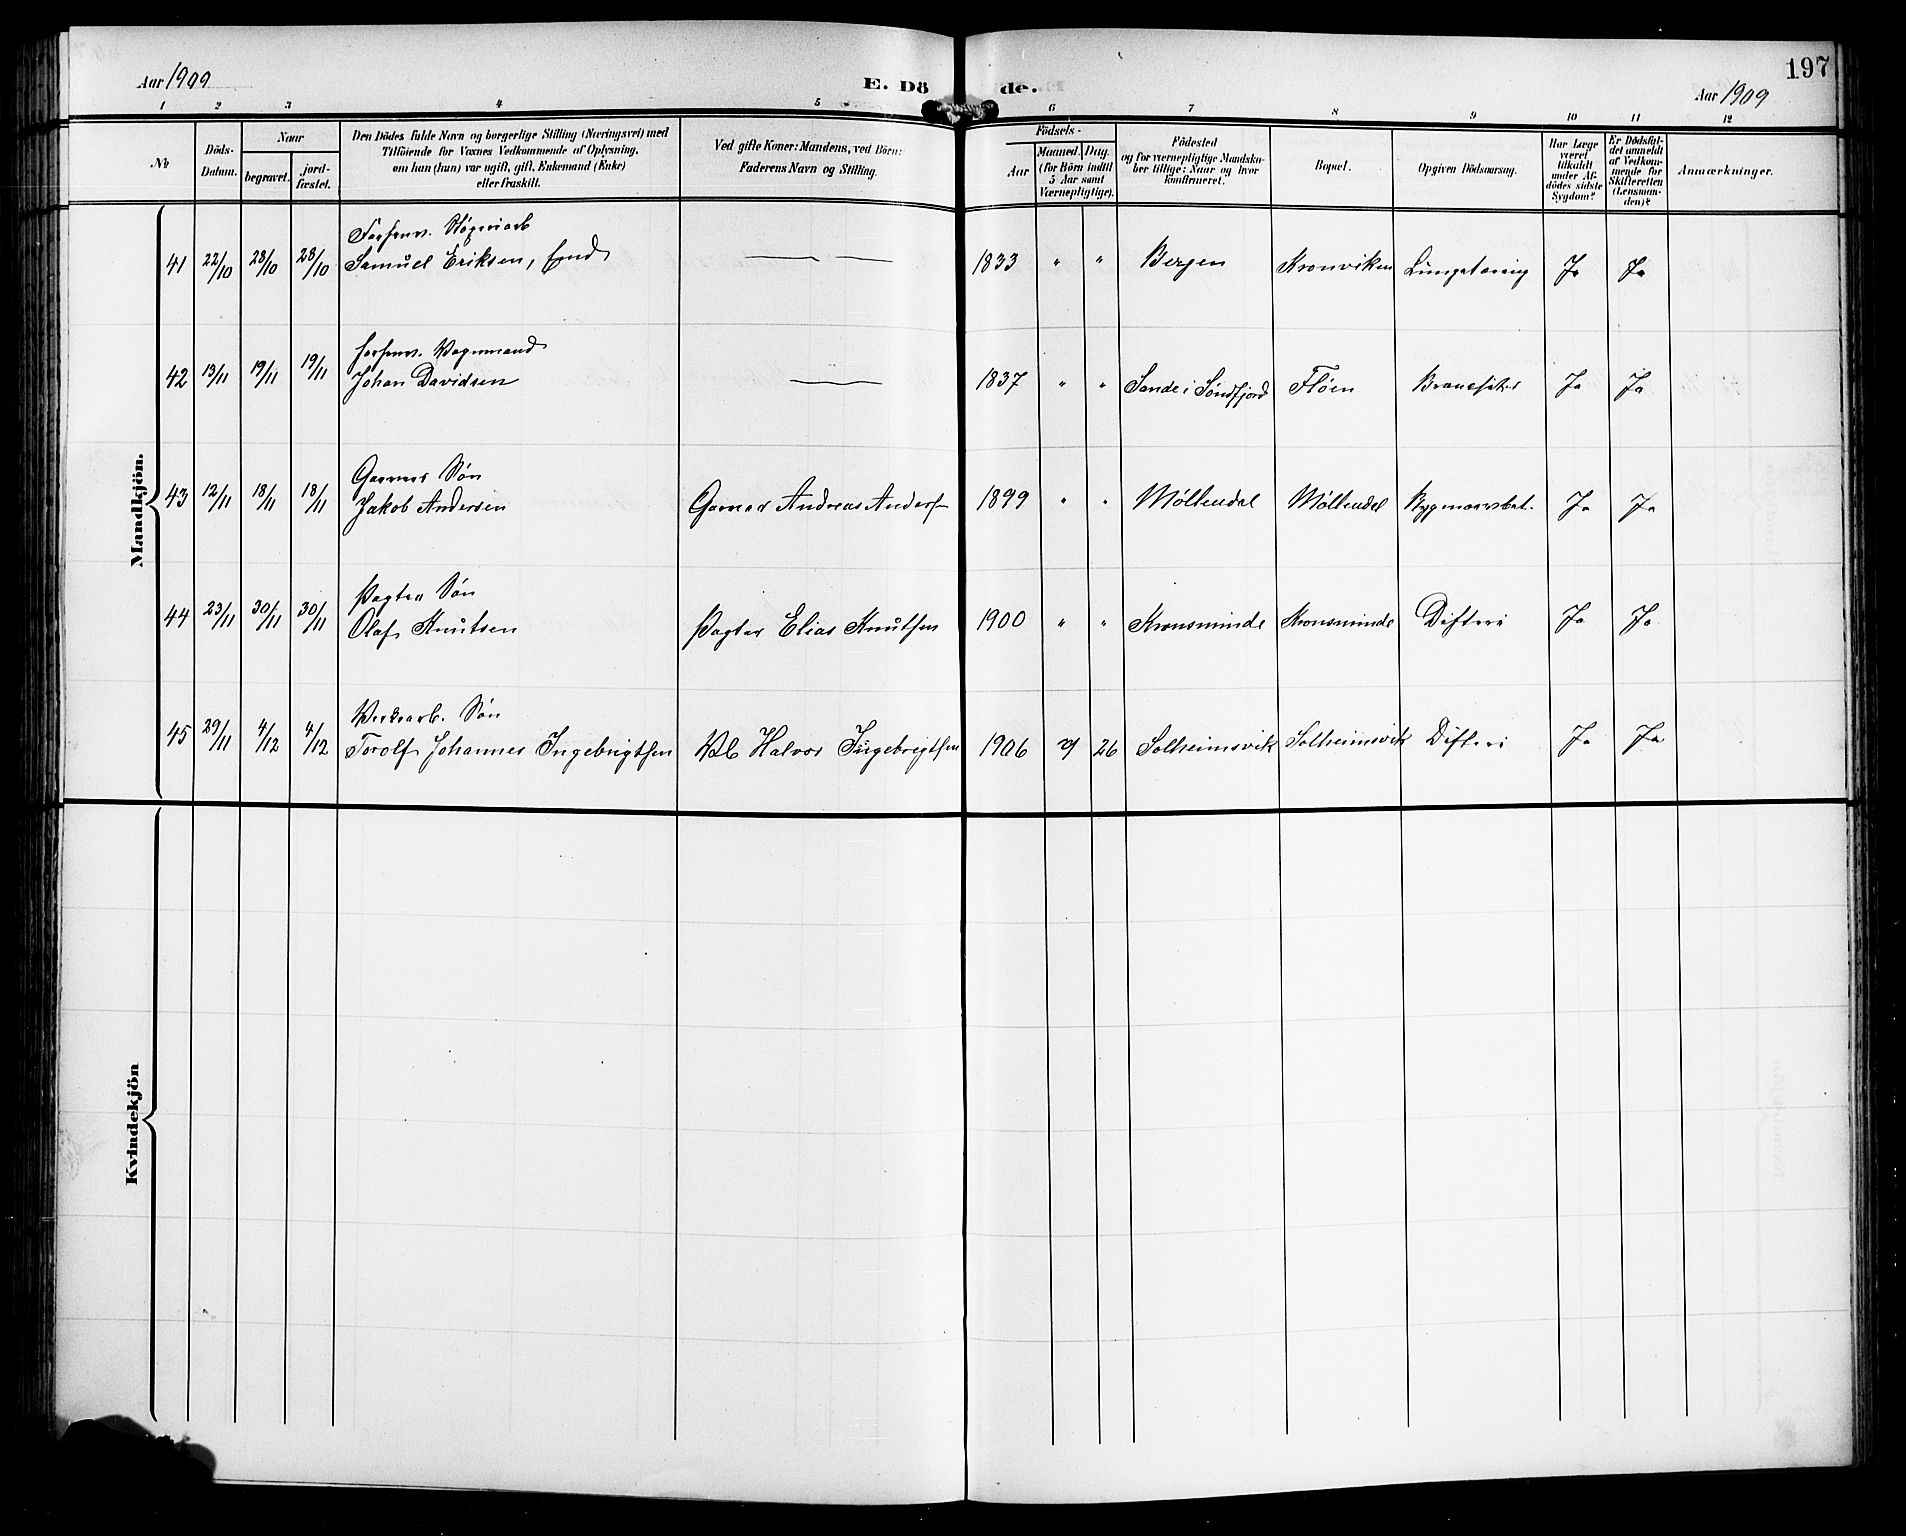 197
Aar 1909
E. Dö
de.
Aar 1909
1 2 3 4 5 6 7 8 9 10 11 12
No
Döds-
Datum.
Naar
begravet.
jord-
fæstet.
Den Dödes fulde Navn og borgerlige Stilling (Næringsvei) med
Tilföiende for Voxnes Vedkommende af Oplysning,
om han (hun) var ugift, gift, Enkemand (Enke)
eller fraskilt.
Ved gifte Koner: Mandens, ved Börn:
Faderens Navn og Stilling.
Födsels-
Aar
Maaned.
Dag.
(for Börn indtil
5 Aar samt
Værnepligtige).
Födested
og for værnepligtige Mandska-
ber tillige: Naar og hvor
konfirmeret.
Bopæl.
Opgiven Dödsaarsag.
Har Læge
været
tilkaldt
under Af-
dödes sidste
Sygdom?
Er Dödsfal-
det anmeldt
af Vedkom-
mende for
Skifteretten
(Lensman-
den)?
Anmærkninger.
Mandkjön.
Forhenv.
41 22/10 28/10 28/10 Samuel Eriksen, 1833 " " Bergen Kronviken Ja Ja
forhenv. Vognmand
42 13/11 19/11 19/11 Johan Davidsen 1837 " " Sande i Søndfjord Fløen Ja Ja
Garvers Søn
43 12/11 18/11 18/11 Jakob Andersen Garver Andreas Anders 1899 " " Møllendal Møllendal Ja Ja
Pagter Søn
44 23/11 30/11 30/11 Olaf Knutsen Pagter Elias Knutsen 1900 " " Kronsminde Kronsminde Difteri Ja Ja
Verksarb. Søn
45 29/11 4/12 4/12 Torolf Johannes Ingebrigtsen Halvor Ingebrigtsen 1906 26 Solheimsvik Solheimsvik Difteri Ja Ja
Kvindekjön